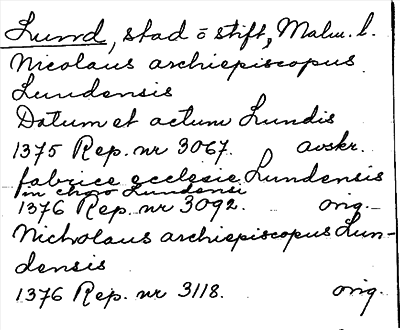 Lund, stad o stift, Malm. l.
Nicolaus archiepiscopus
Lundensis
Datum et actum Lundis
1375 Rep. nr 3067. avskr.
fabrice ecclesie Lundensis
in choro Lundensi
1376 Rep. nr 3092. orig.
Nicholaus archiepiscopus Lun-
densis
1376 Rep. nr 3118. orig.